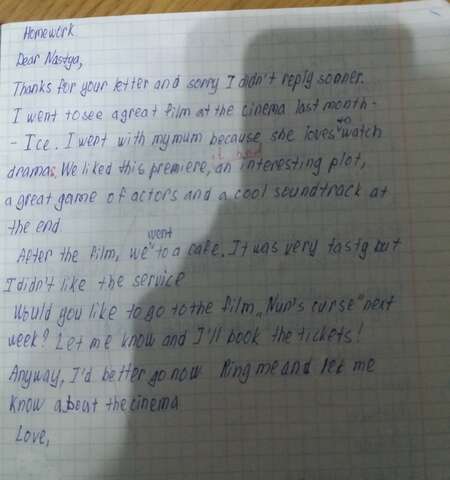 Homework
Dear Nastya,
Thanks for your letter and sorry I didn't reply sooner.
I went to see a great film at the cinema last month -
- Ice. I went with my mum because she loves to watch
dramas. We liked this premiere, it had an interesting plot,
a great game of actors and a cool soundtrack at
the end
After the film, we went to a cafe. It was very tasty but
I didn't like the service
Would you like to go to the film „Nun's curse" next
week? Let me know and I'll book the tickets!
Anyway, I'd better go now Ring me and let me
know about the cinema
Love,